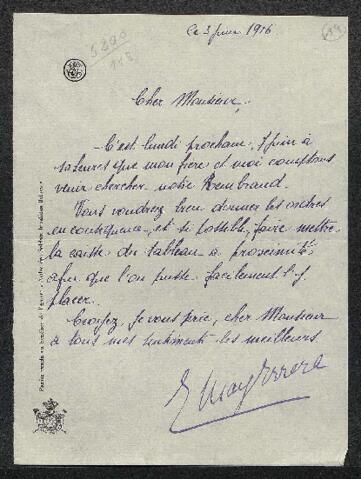 5280
Ce 3 juin 1916
Cher Monsieur,
C'est lundi prochain, 7 juin à
heures que mon frère et moi comptons
venir chercher notre Rembrand.
Vous voudrez bien donner les ordres
en conséquence, et si possible, faire mettre
la caisse du tableau à proximité,
afin que l'on puisse facilement l'y
placer.
Croyez, je vous prie, cher Monsieur
à tous mes sentiments les meilleurs
Errera